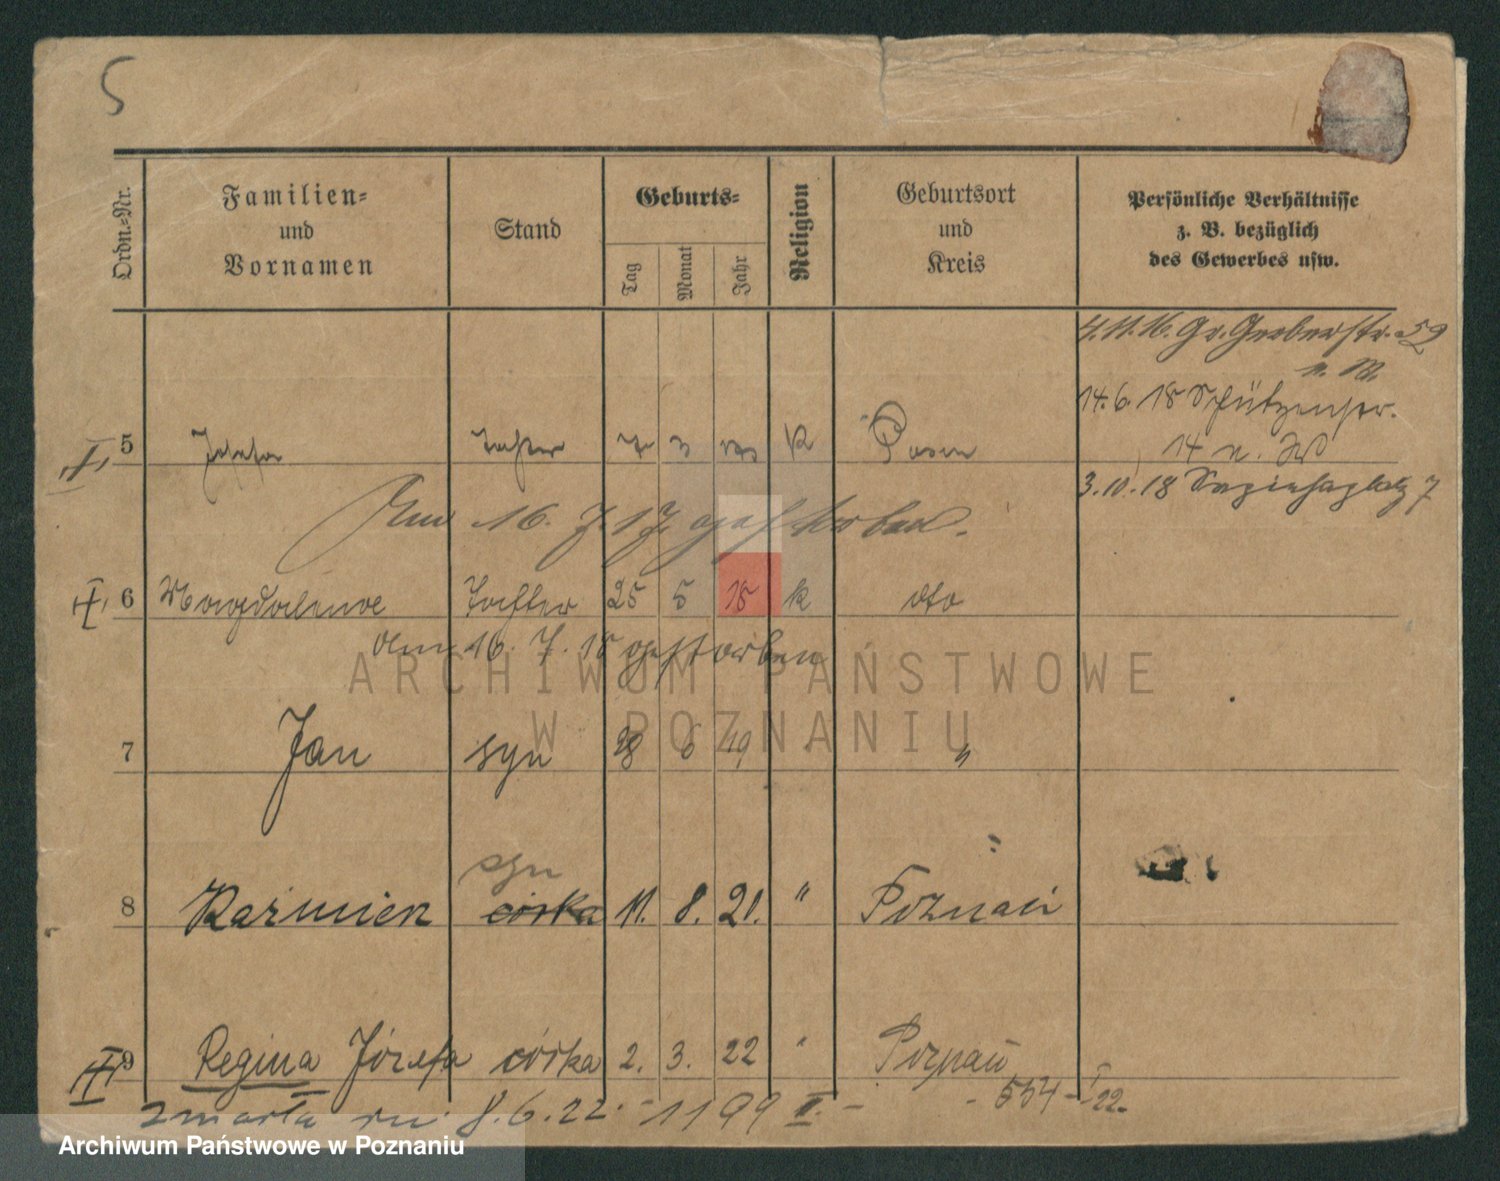 5
Ordn.-Nr.
Familien-
und
Vornamen
Stand
Geburts-
Tag
Monat
Jahr
Religion
Geburtsort
und
Kreis
Persönliche Verhältnisse
z. B. bezüglich
des Gewerbes usw.
4.11.16. Gr. Gerberstr. 52
14.6.18 Schützenstr.
14
3.10.18 Sapiehaplatz 7
5 Josefa Tochter 7 3 K Posen
Am 16. 7. 17. gestorben.
6 Magdalena Tochter 25 5 18 k dto
Am 16. 7. 18 gestorben
7 Jan syn 28 6 19 "
syn
8 Kazimierz córka 11. 8. 21. " Poznań
9 Regina Józefa córka 2. 3. 22 " Poznań
zmarła dn. 8.6.22. - 1199 II. - - 554 - I 22.
ARCHIWUM PAŃSTWOWE
W POZNANIU
Archiwum Państwowe w Poznaniu